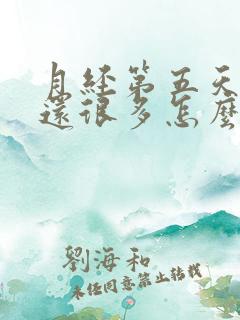 月經第五天
還很多怎麼
劉海和
未經同意禁止轉載